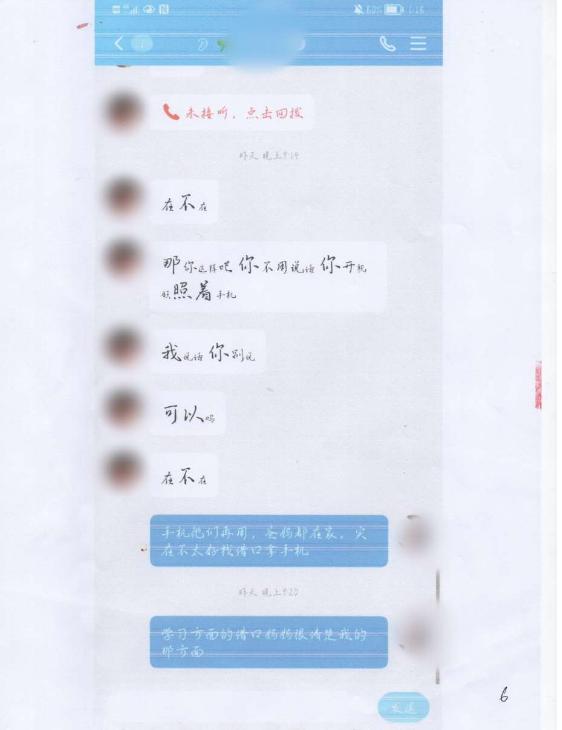 1:16
未接听，点击回拨
昨天 晚上9:19
在不在
那你这样吧你不用说话你开机
照着手机
我说话你别说
可以吗
在不在
手机他们再用，爸妈都在家，实
在不太好找借口拿手机
昨天 晚上9:20
学习方面的借口妈妈很清楚我的
那方面
发送
6